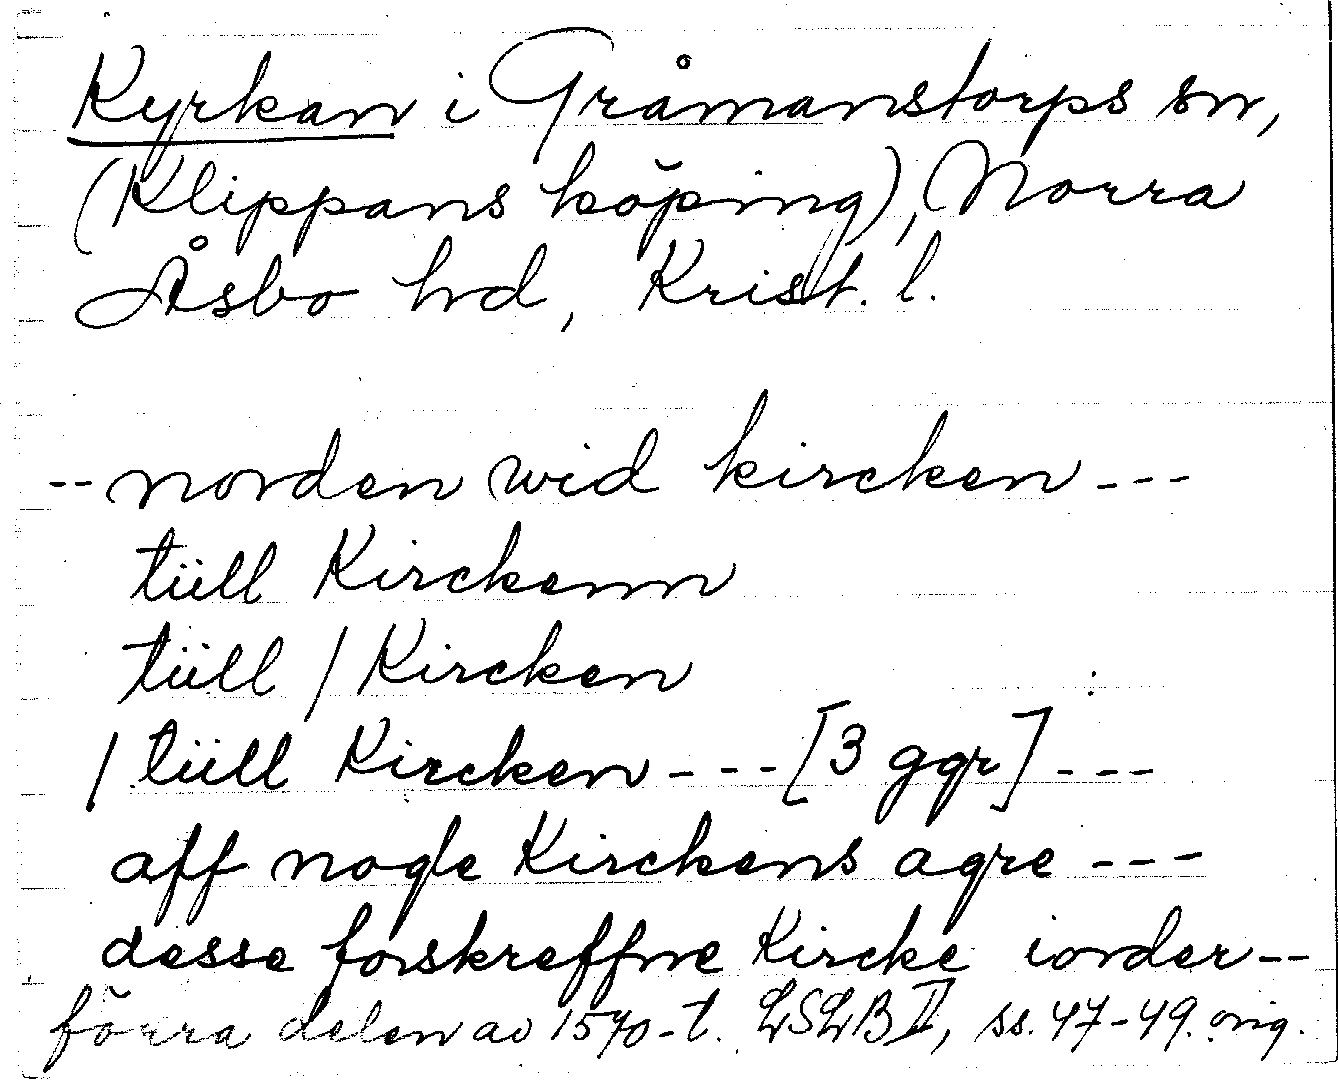 Kyrkan i Gråmanstorps sn,
(Klippans köping), Norra
Åsbo hd, Krist. l.
-- norden wid kircken ---
tüll Kirckenn
tüll / Kircken
/ tüll Kircken --- [3 ggr] ---
aff nogle Kirckens agre ---
desse forskreffne Kircke iorder --
förra delen av 1570-t. LSLB II, ss. 47-49. orig.